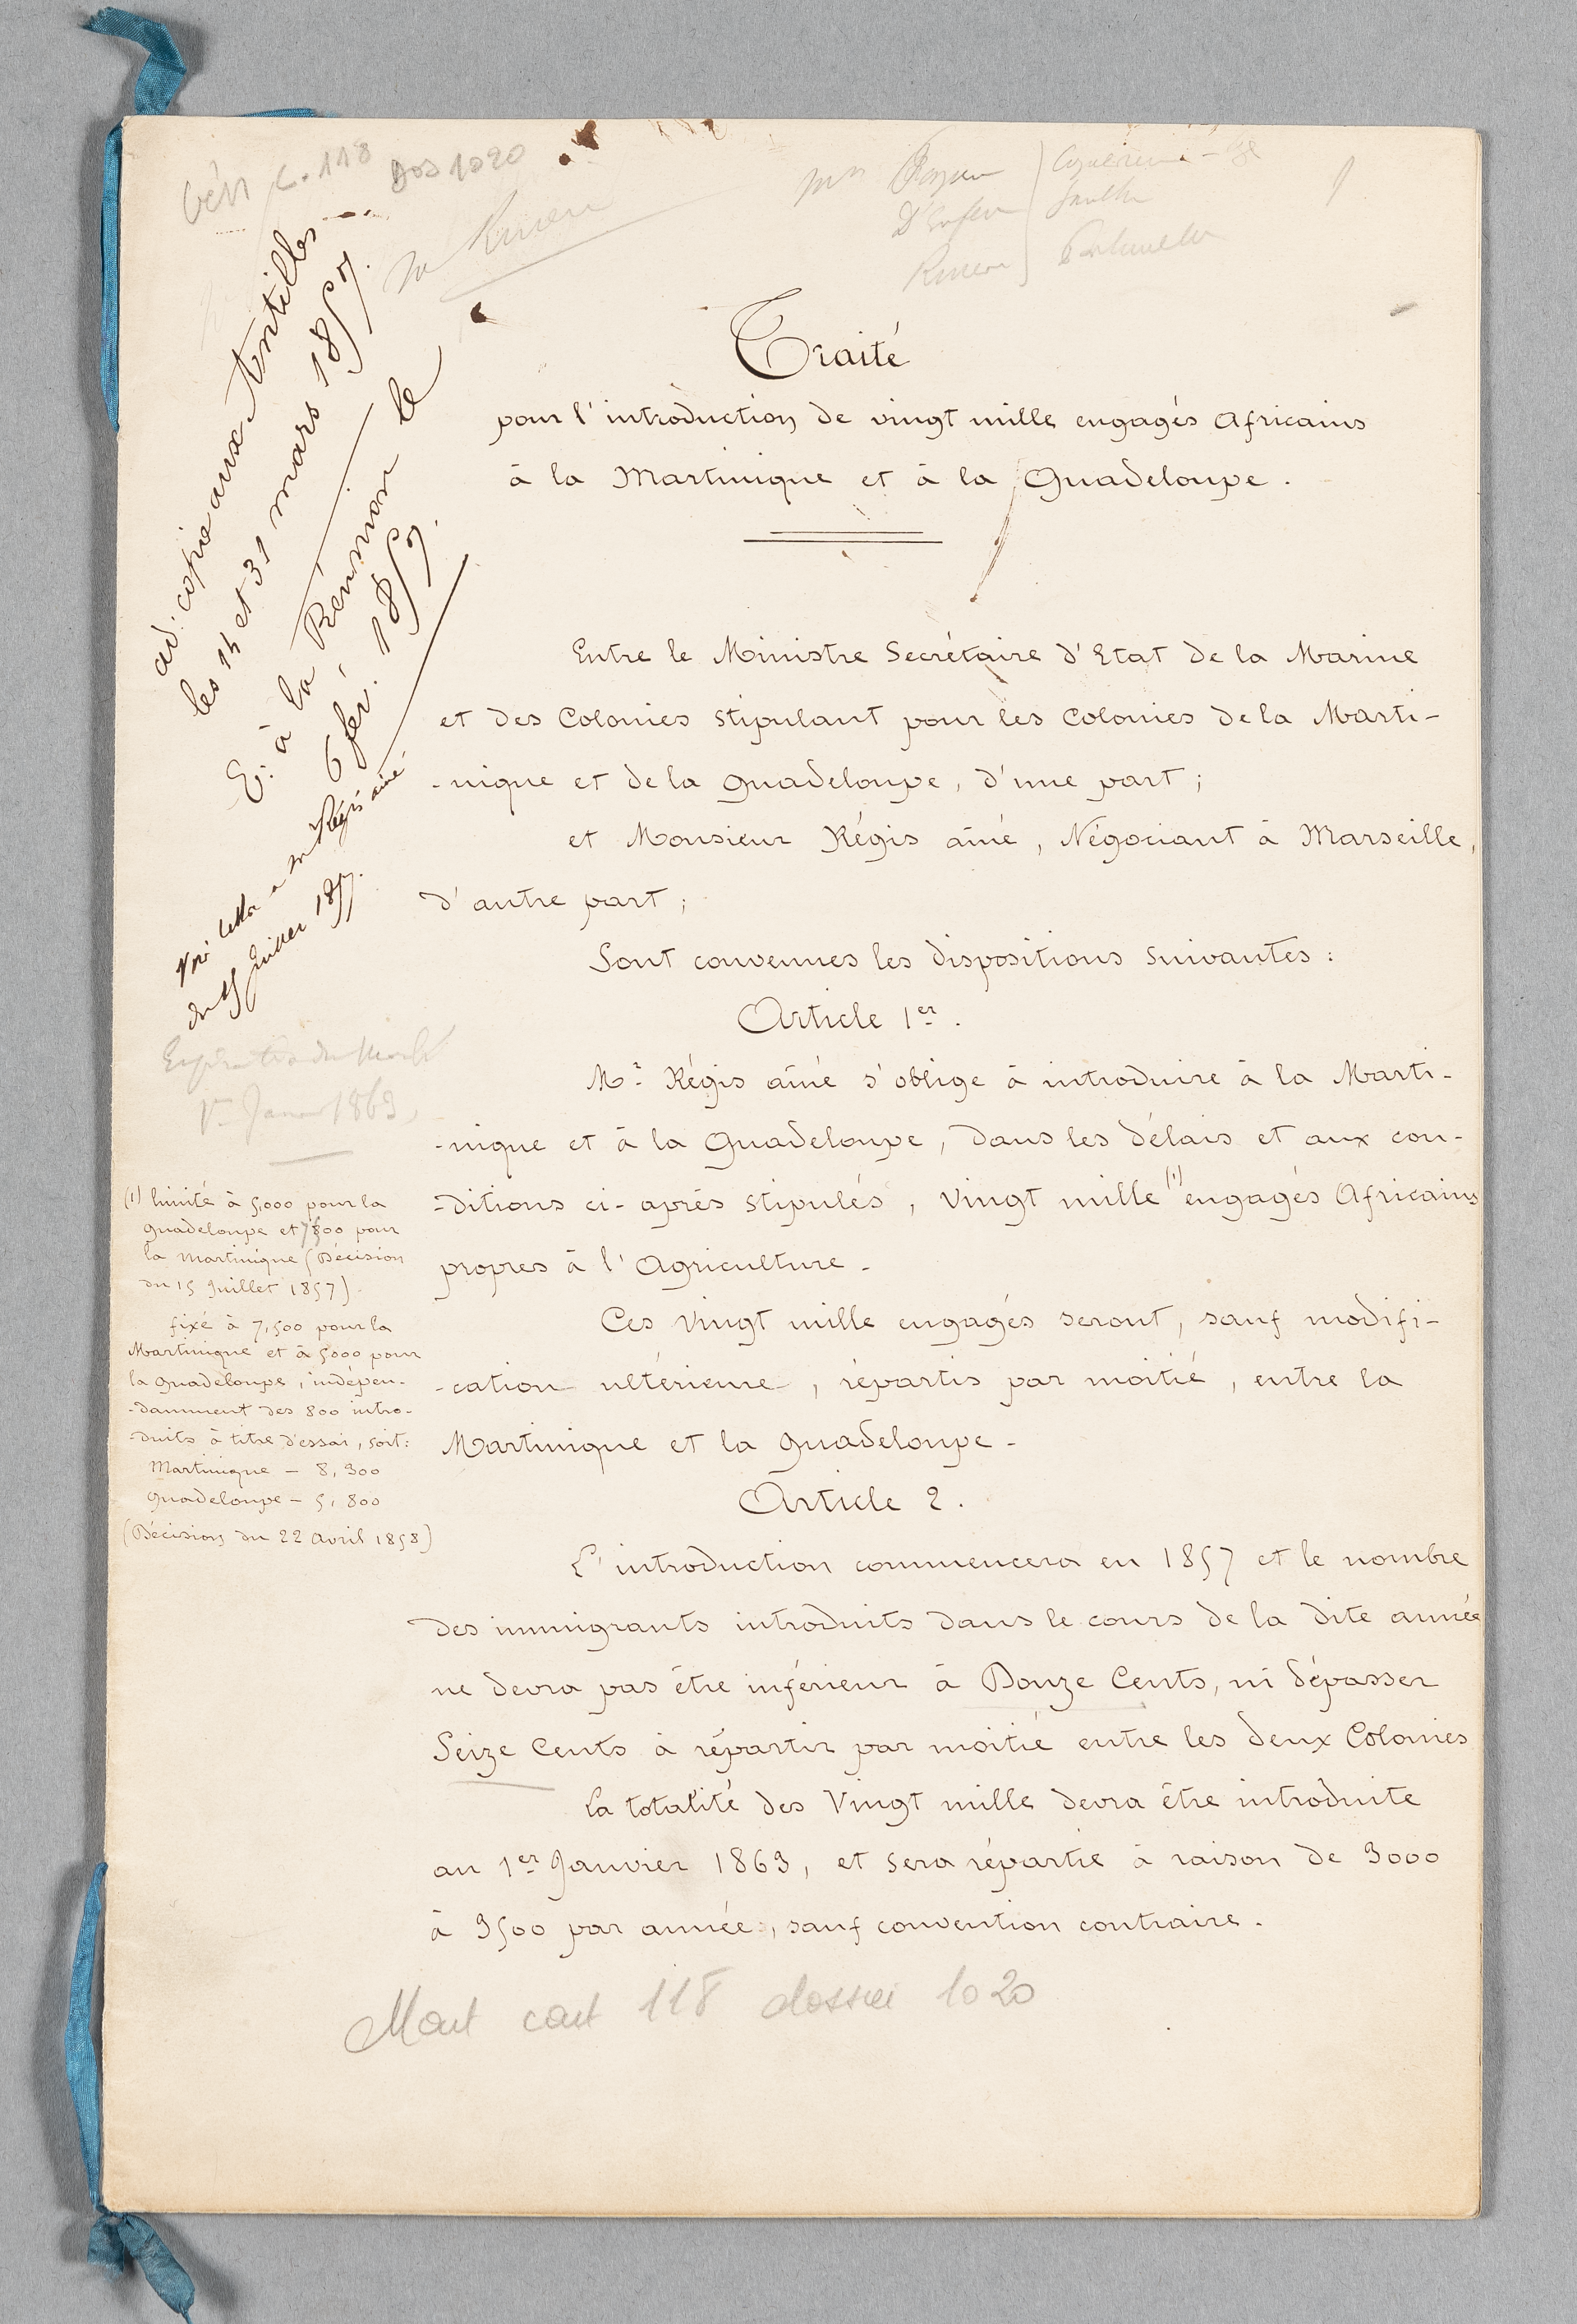 Gén c. 118 Dos 1020
Mrs
ad. copie aux Antilles
les 14 et 31 mars 1857.
E. à la Réunion le
6 fév. 1857.
Voir lettre à Mr Régis aîné
du 15 Juillet 1857.
Expiration du Marché
1er Janvier 1863
Traité
pour l'introduction de vingt mille engagés Africains
à la Martinique et à la Guadeloupe.
Entre le Ministre Secrétaire d'Etat de la Marine
et des Colonies stipulant pour les Colonies de la Marti-
-nique et de la Guadeloupe, d'une part;
et Monsieur Régis aîné, Négociant à Marseille,
d'autre part;
Sont convenues les dispositions suivantes:
Article 1er.
Mr Régis aîné s'oblige à introduire à la Marti-
-nique et à la Guadeloupe, dans les délais et aux con-
-ditions ci-après stipulés, vingt mille (1) engagés Africains
propres à l'Agriculture.
Ces vingt mille engagés seront, sauf modifi-
-cation ultérieure, répartis par moitié, entre la
Martinique et la Guadeloupe.
(1) limité à 5,000 pour la
Guadeloupe et 7500 pour
la Martinique (Décision
du 15 Juillet 1857).
fixé à 7,500 pour la
Martinique et à 5000 pour
la Guadeloupe, indépen-
-damment des 800 intro-
-duits à titre d'essai, soit:
Martinique - 8,300
Guadeloupe - 5,800
(Décision du 22 avril 1858)
Article 2.
L'introduction commencera en 1857 et le nombre
des immigrants introduits dans le cours de la dite année
ne devra pas être inférieur à Douze Cents, ni dépasser
Seize Cents à répartir par moitié entre les deux Colonies
La totalité des Vingt mille devra être introduite
au 1er Janvier 1863, et sera répartie à raison de 3000
à 3500 par année, sauf convention contraire.
Mart cart 118 dossier 1020